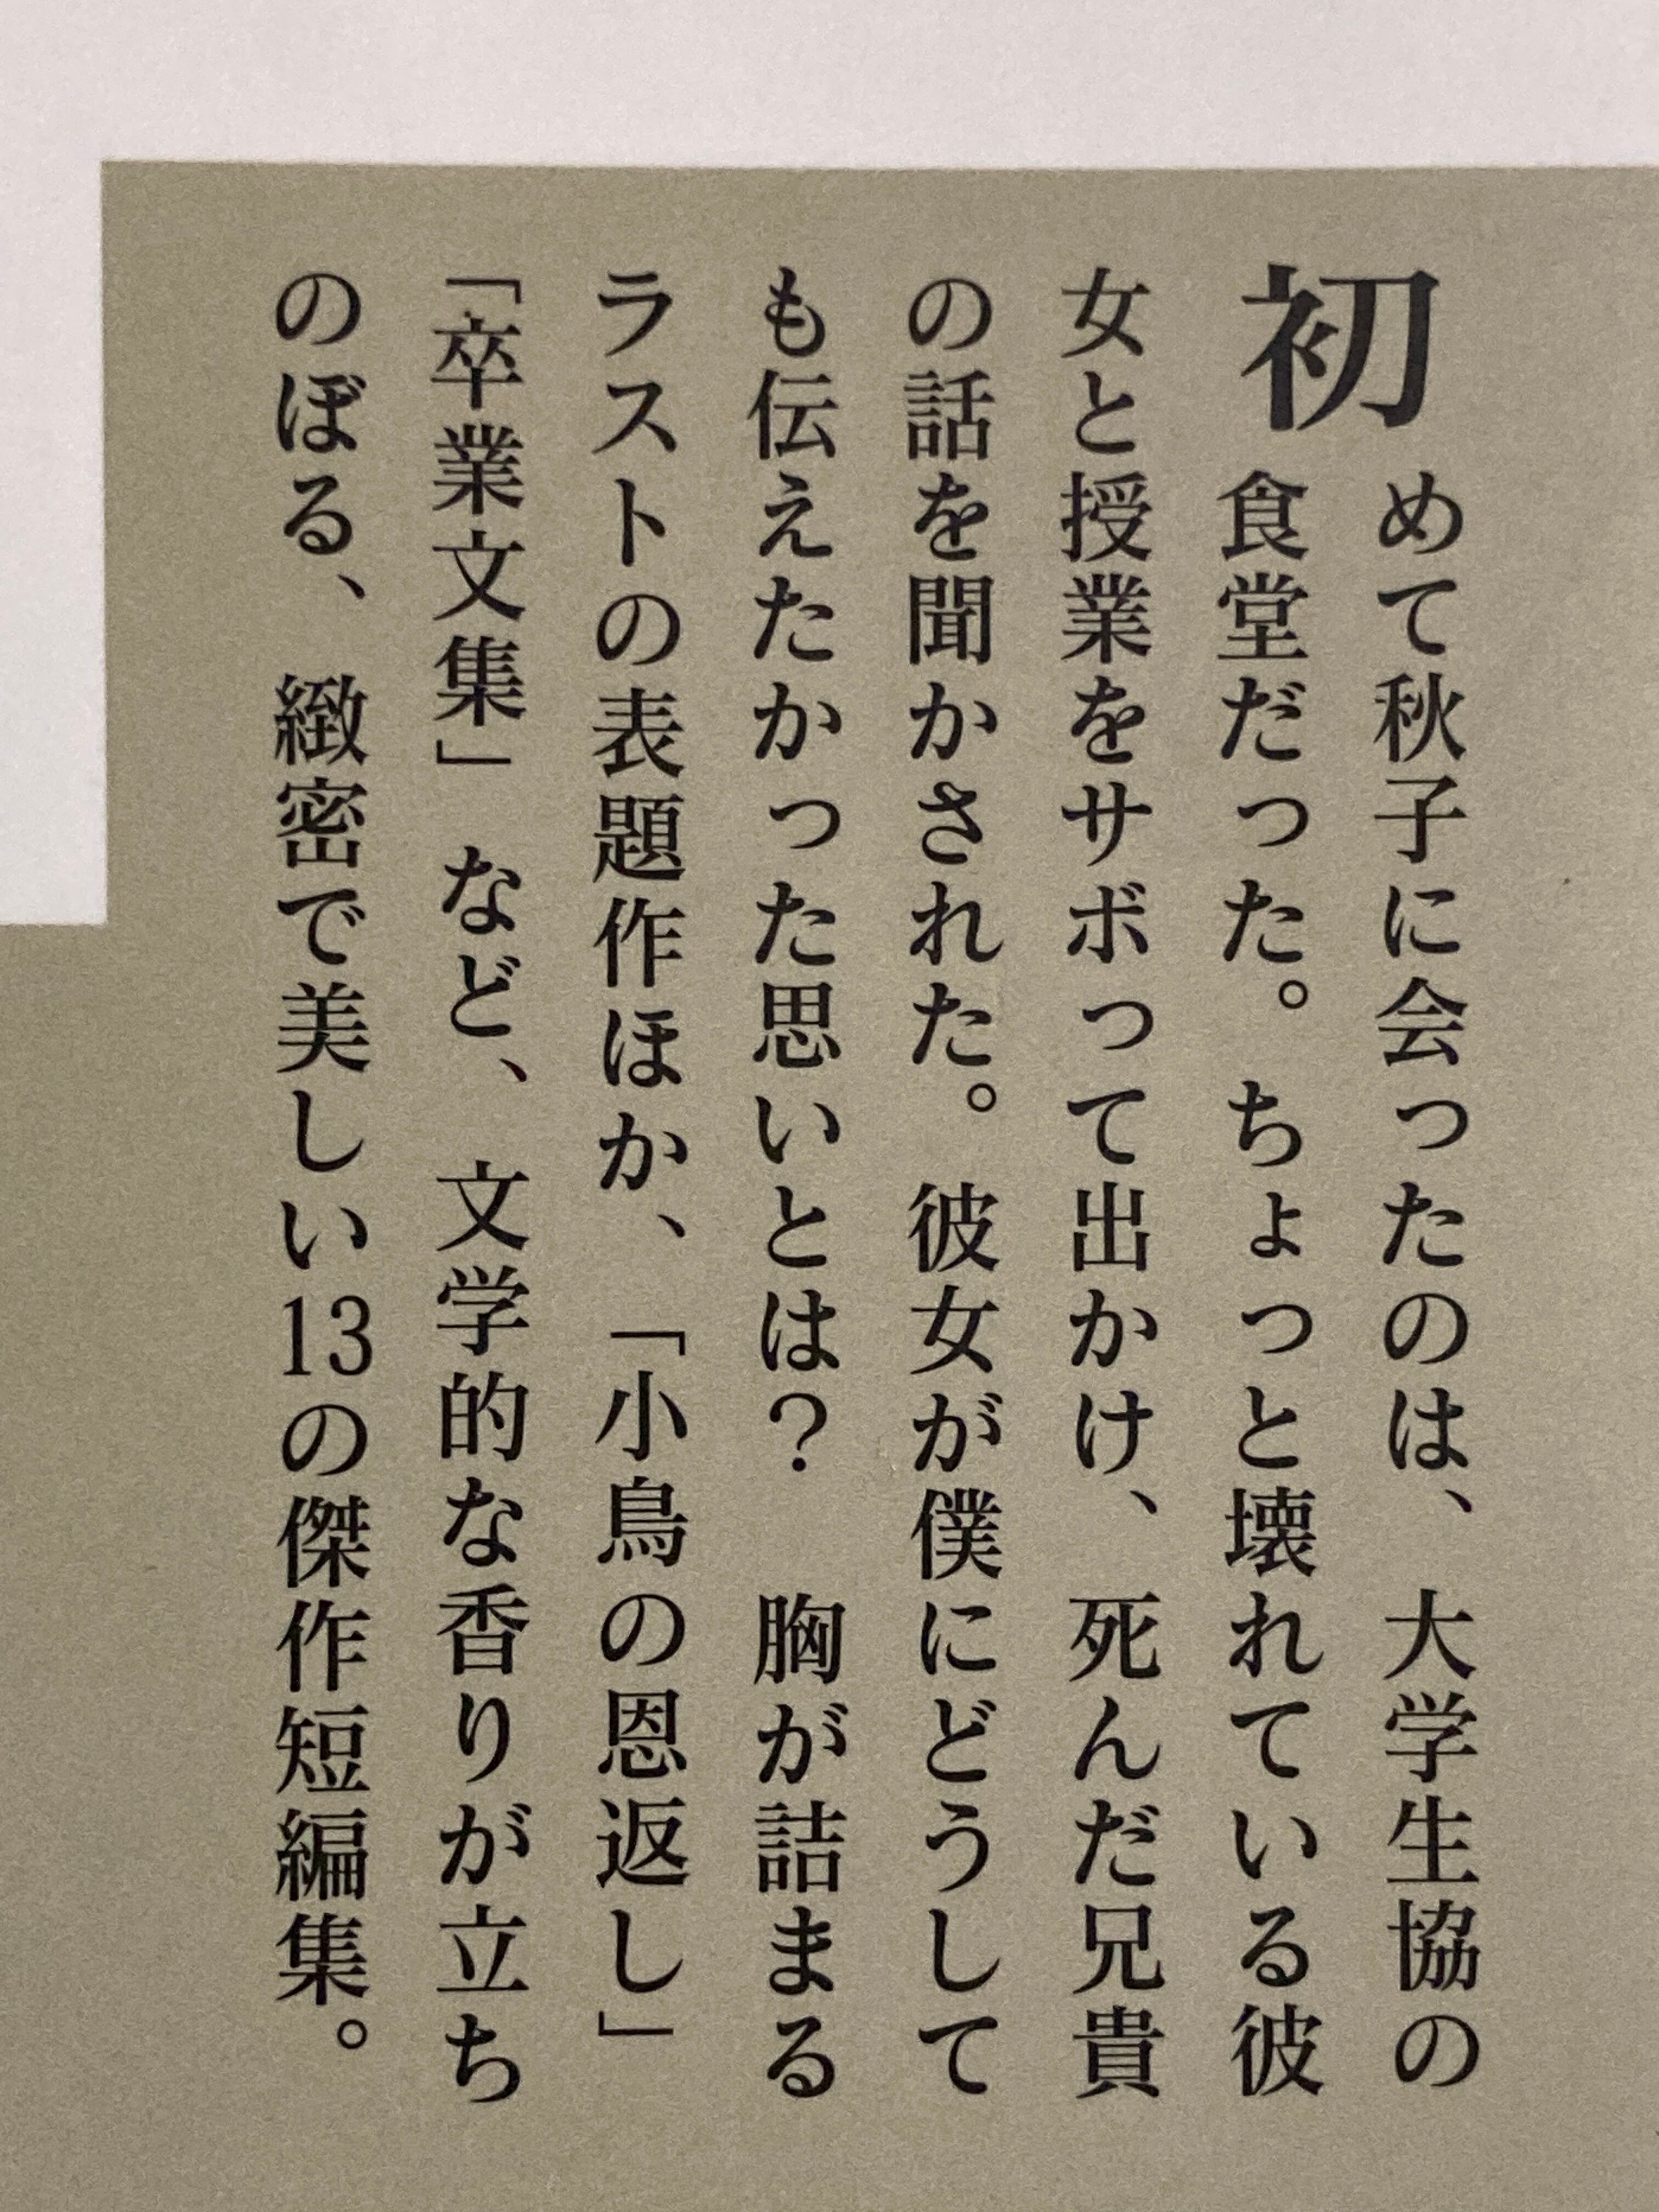 初めて秋子に会ったのは、大学生協の
食堂だった。ちょっと壊れている彼
女と授業をサボって出かけ、死んだ兄貴
の話を聞かされた。彼女が僕にどうして
も伝えたかった思いとは？　胸が詰まる
ラストの表題作ほか、「小鳥の恩返し」
「卒業文集」など、文学的な香りが立ち
のぼる、緻密で美しい13の傑作短編集。